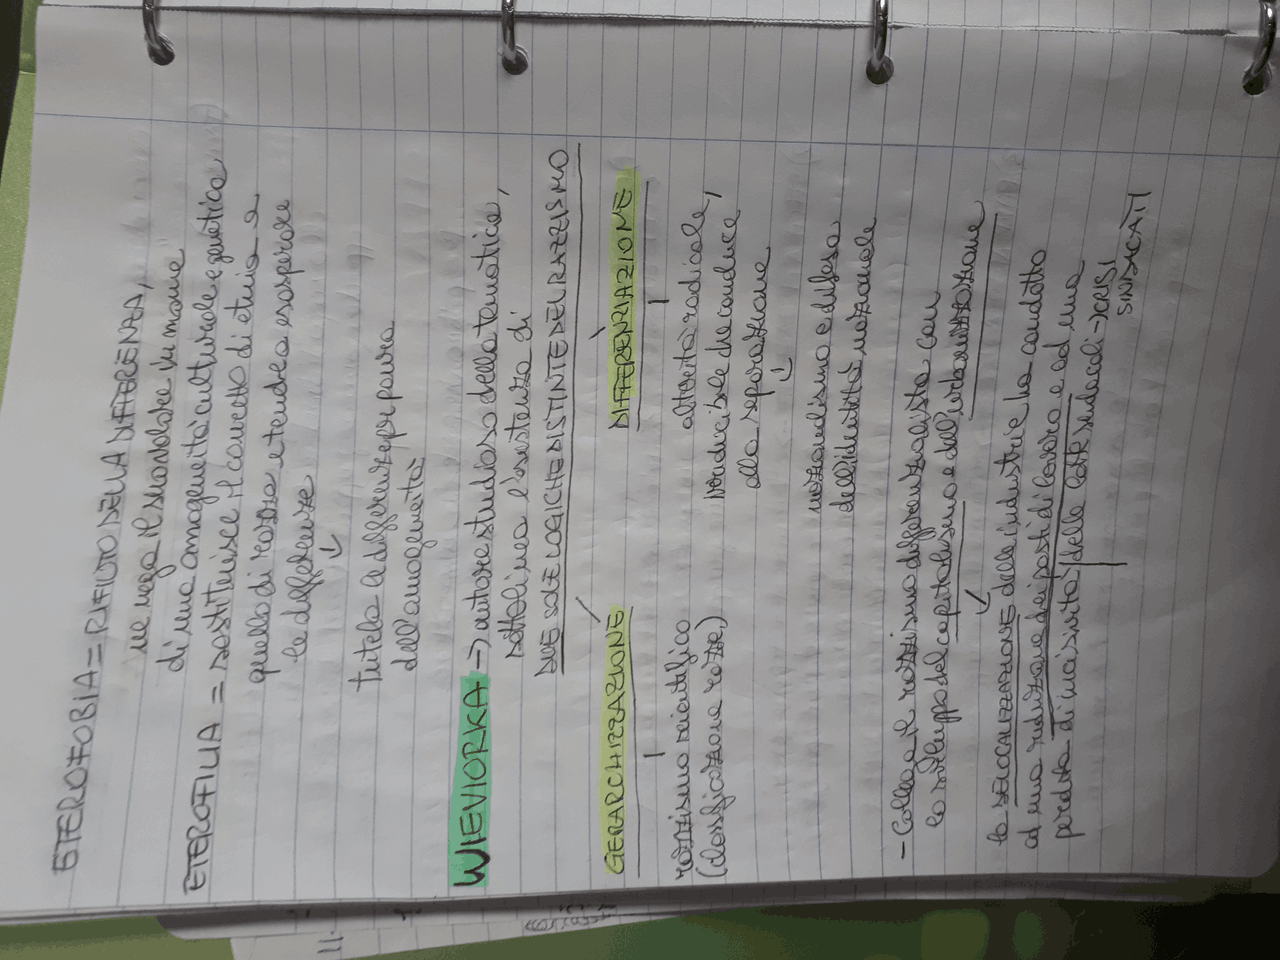 ETEROFOBIA = RIFIUTO DELLA DIFFERENZA,
ne nega il mandato in nome
di una omogeneità culturale e genetica
ETEROFILIA = sostituisce il concetto di etnia a
quello di razza e tende a esasperare
le differenze
↓
tutela le differenze per paura
dell'omogeneità
WIEVIORKA → autore studioso della tematica,
sottolinea l'esistenza di
DUE SOLE LOGICHE DISTINTE DEL RAZZISMO
GERARCHIZZAZIONE
DIFFERENZIAZIONE
razzismo scientifico
(classificazione razze)
alterità radicale,
irriducibile che conduce
alla separazione
↓
nazionalismo e difesa
dell'identità nazionale
- Collega il razzismo differenzialista con
lo sviluppo del capitalismo e dell'urbanizzazione
↓
la DELOCALIZZAZIONE delle industrie ha condotto
ad una riduzione dei posti di lavoro e ad una
perdita di incisività delle lotte sindacali → CRISI
SINDACATI